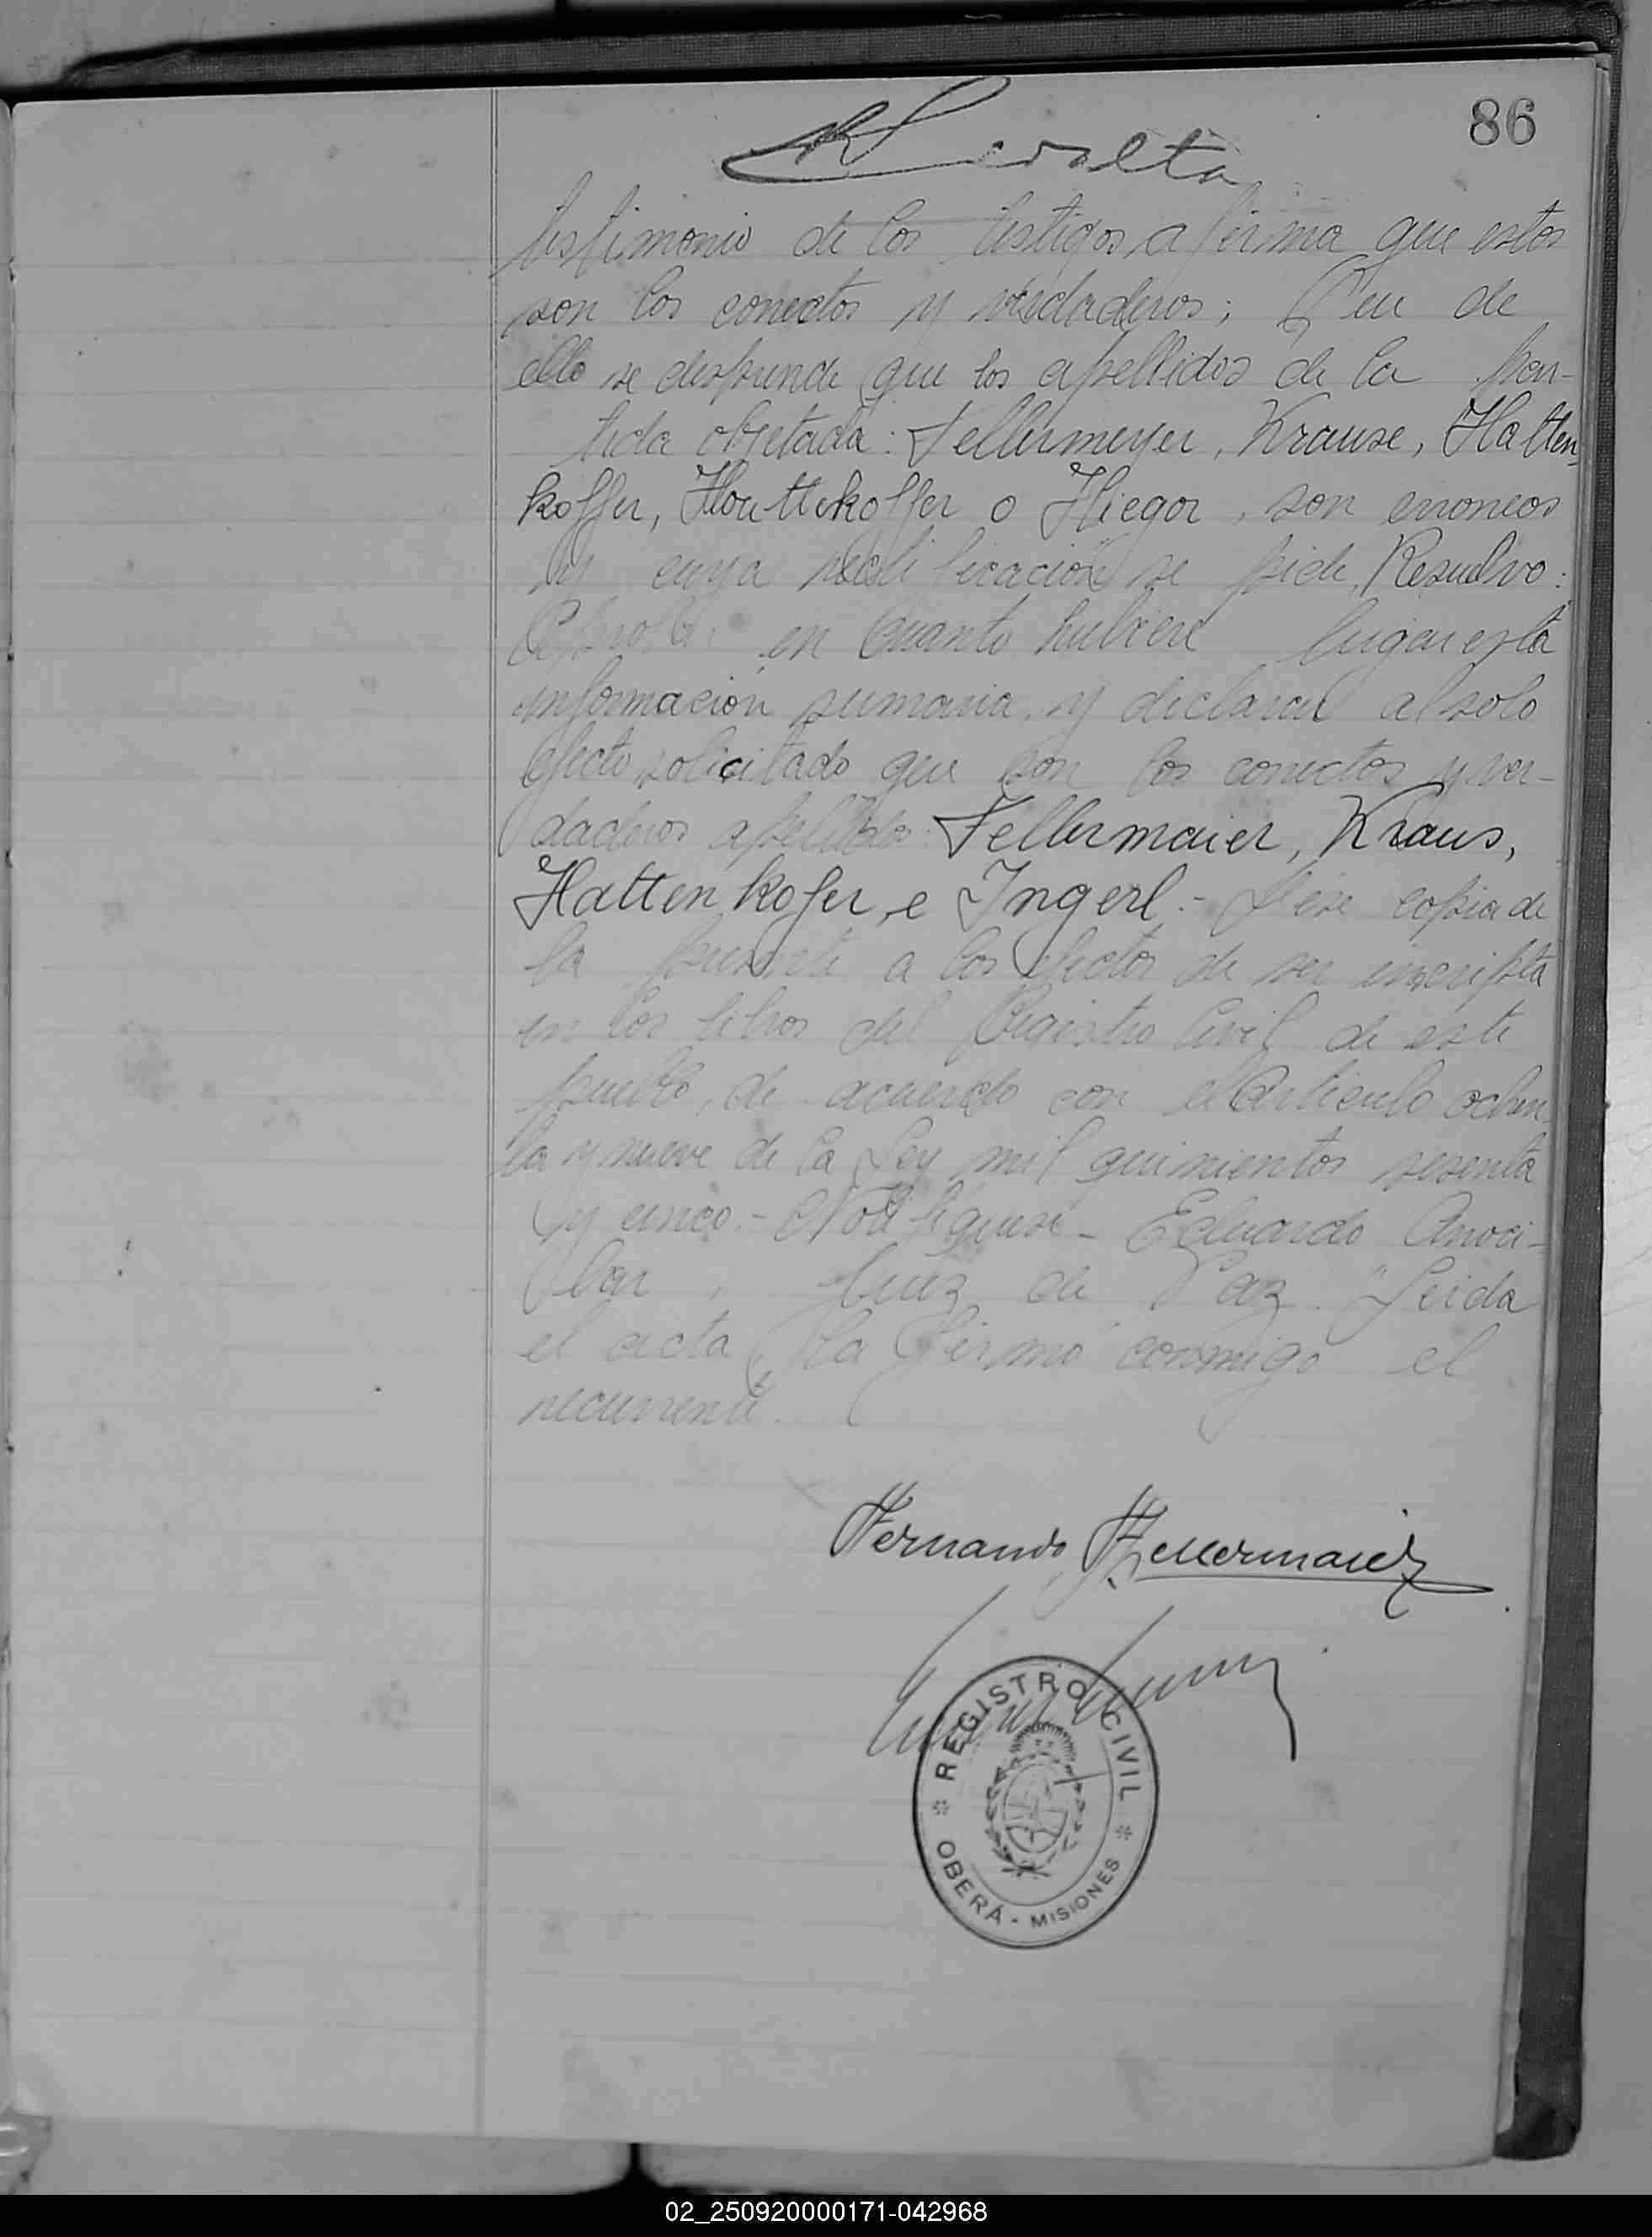 86
testimonio de los testigos, afirma que estos
son los correctos y verdaderos; Que de
ello se desprende que los apellidos de la par-
tida objetada: Fellermeyer, Krause, Hatten-
koffer, Houttekoffer o Hliegor, son erroneos
y cuya rectificación se pide, Resuelvo:
en cuanto hubiere lugar esta
información sumaria y declarar al solo
efecto solicitado que son los correctos y ver-
daderos apellidos: Fellermaier, Kraus,
Hattenkofer, e Ingerl.- Dése copia de
la presente a los efectos de ser inscripta
en los libros del Registro Civil de este
pueblo, de acuerdo con el artículo ochen
ta y nueve de la Ley mil quinientos sesenta
y cinco.- Notifíquese - Eduardo Aroci-
bar, Juez de Paz." Leída
el acta la firmó conmigo el
recurrente.
Fernando Fellermaier
REGISTRO CIVIL
OBERÁ - MISIONES
02_250920000171-042968